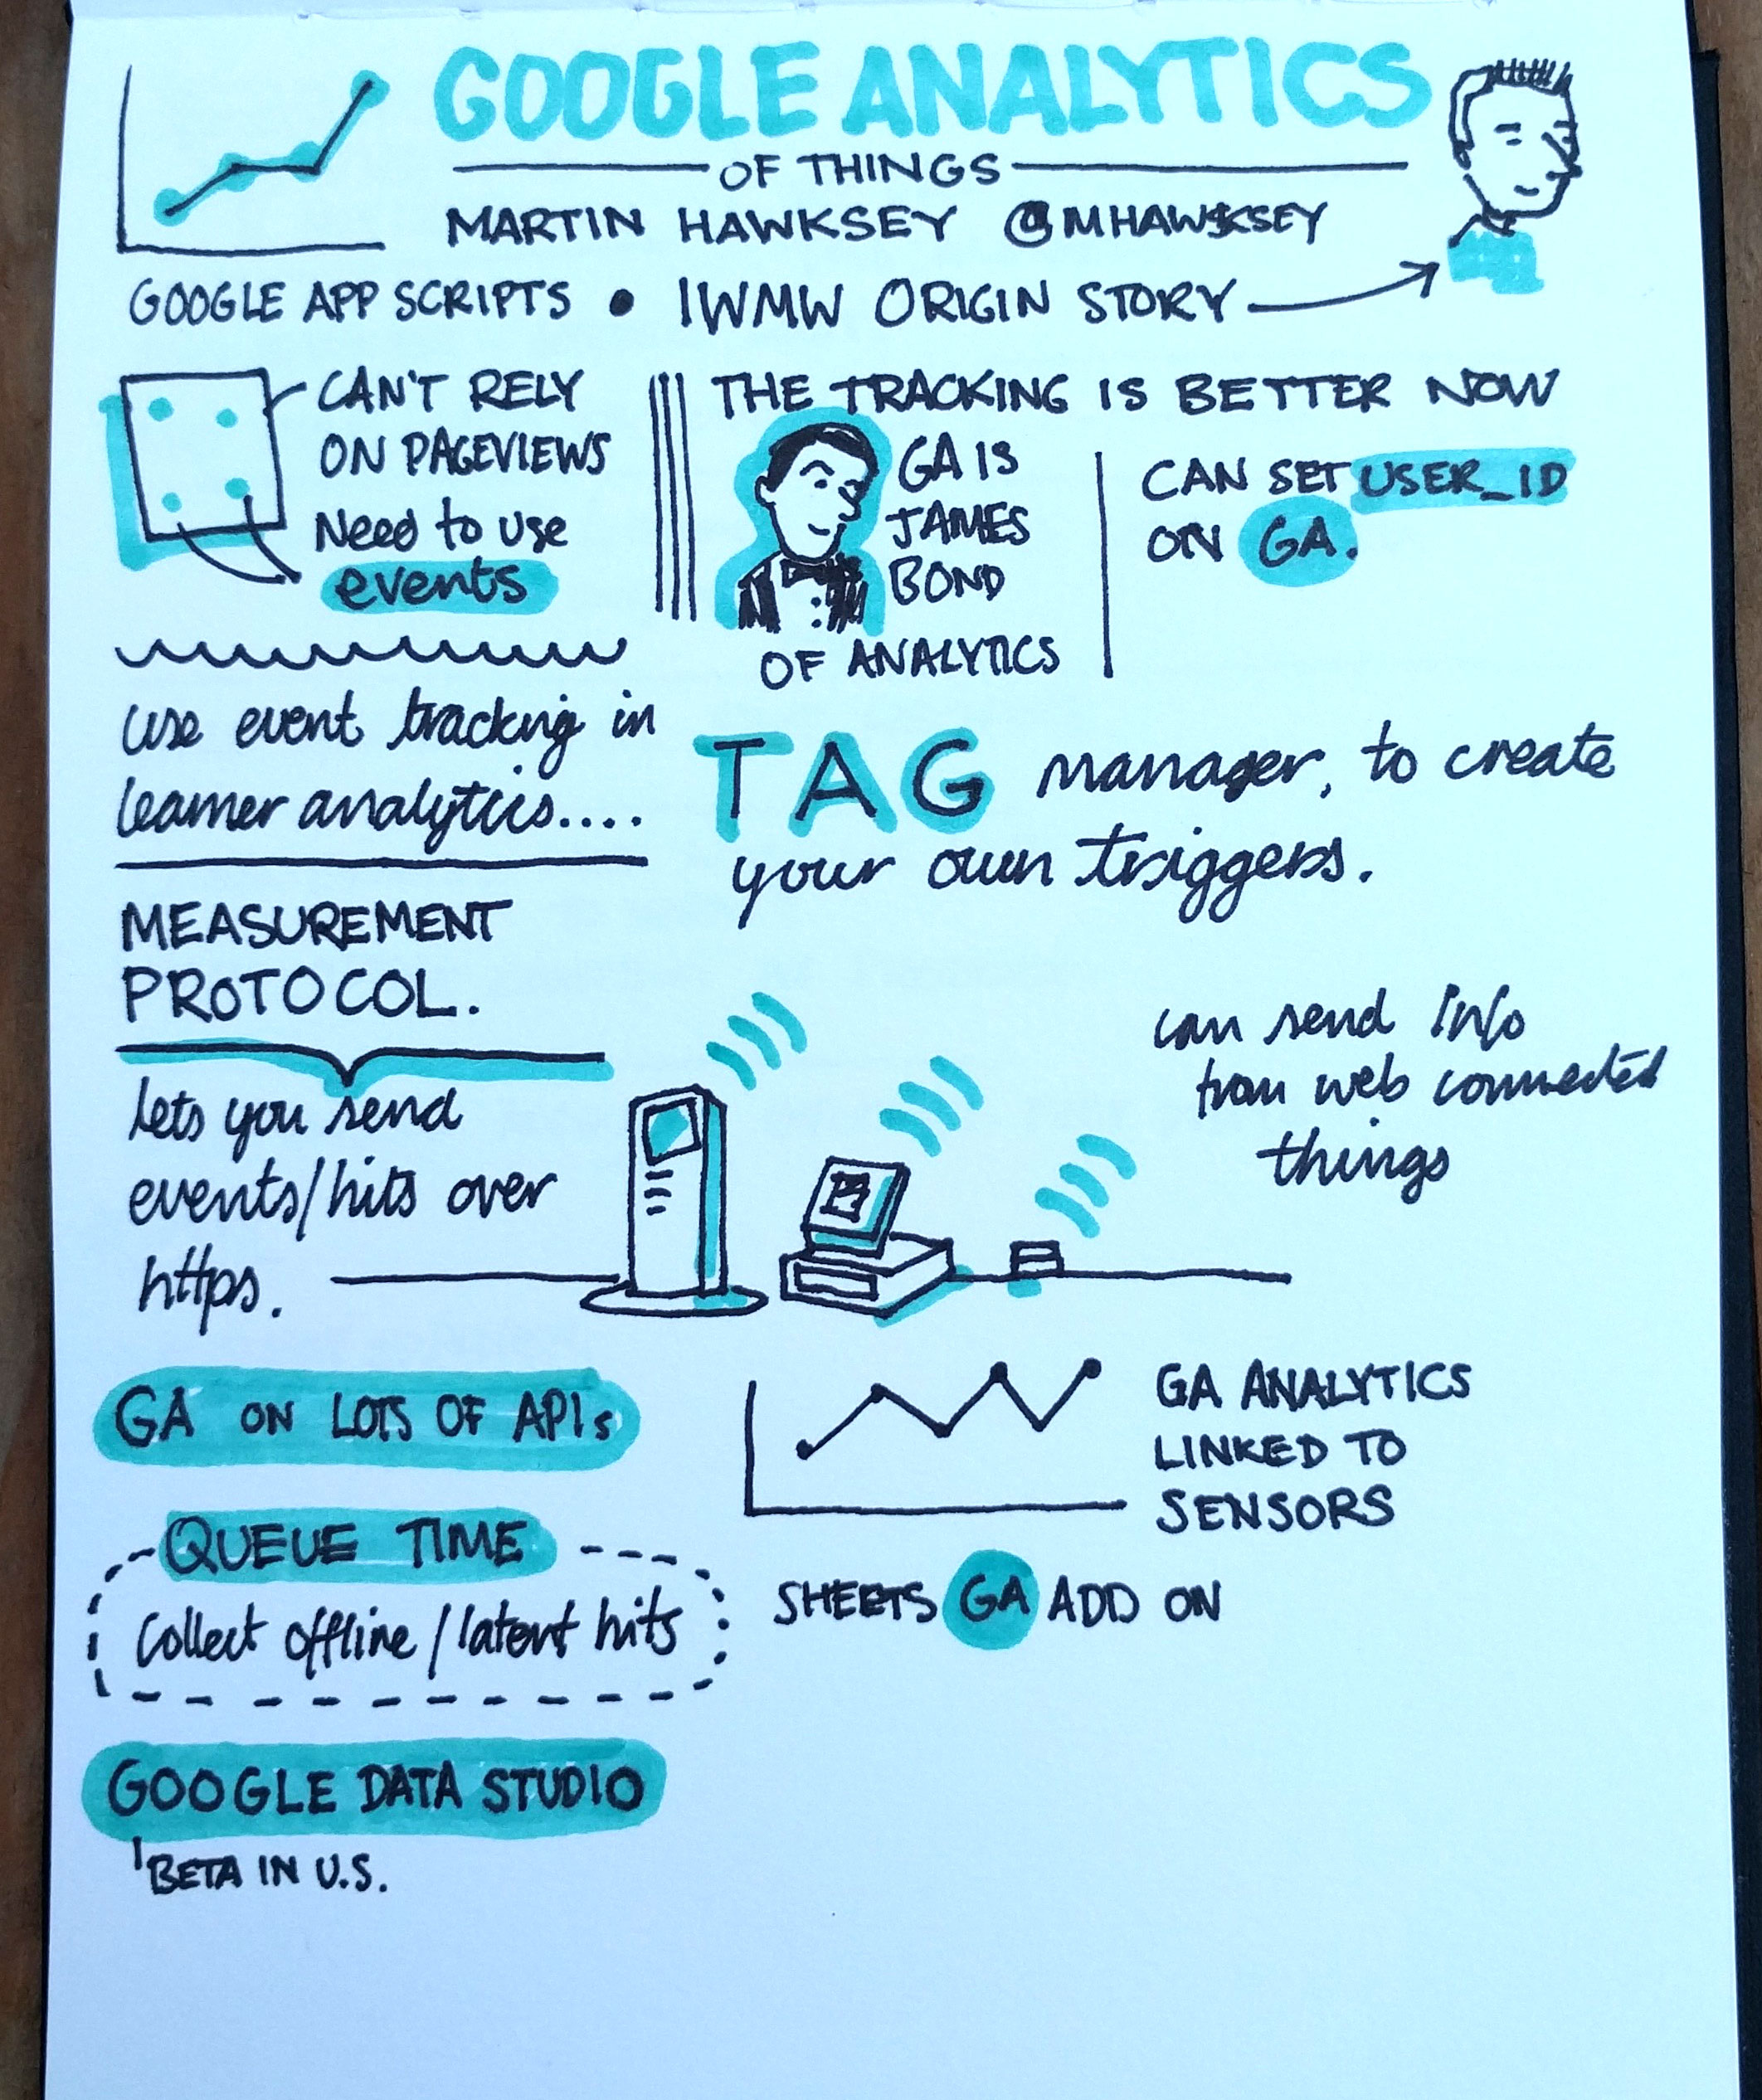 GOOGLE ANALYTICS
OF THINGS
MARTIN HAWKSEY @MHAWKSEY
GOOGLE APP SCRIPTS • IWMW ORIGIN STORY
CAN'T RELY
ON PAGEVIEWS
Need to use
events
THE TRACKING IS BETTER NOW
GA IS
JAMES
BOND
OF ANALYTICS
CAN SET USER_ID
ON GA.
use event tracking in
learner analytics....
TAG manager, to create
your own triggers.
MEASUREMENT
PROTOCOL.
lets you send
events/hits over
https.
can send info
from web connected
things
GA ON LOTS OF APIs
GA ANALYTICS
LINKED TO
SENSORS
QUEUE TIME
Collect offline/latent hits
SHEETS GA ADD ON
GOOGLE DATA STUDIO
BETA IN U.S.